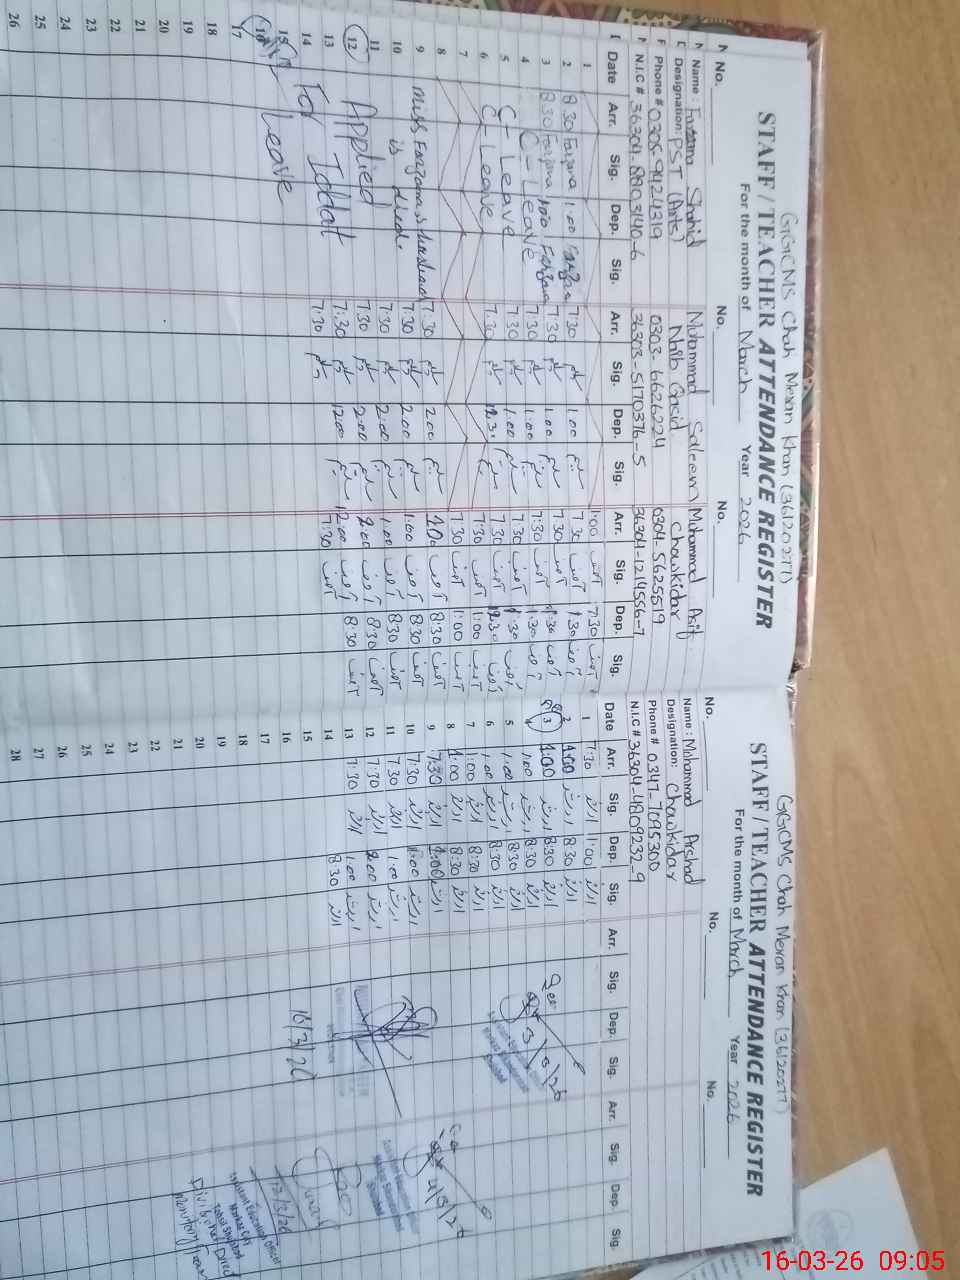 GGCMS Chah Meran Khan (36120277)
STAFF / TEACHER ATTENDANCE REGISTER
For the month of March Year 2026
No. No. No.
Name: Farzana Shahid Muhammad Saleem Muhammad Asif
Designation: PST (Arts) Naib Qasid Chowkidar
Phone # 0306-9424319 0303-6626224 0304-5625519
N.I.C # 36304-8803140-6 36303-5170376-5 36304-1214556-7
Date Arr. Sig. Dep. Sig. Arr. Sig. Dep. Sig. Arr. Sig. Dep. Sig.
1 1:00 آصف 7:30 آصف
2 8:30 Farzana 1:00 Farzana 7:30 1:00 7:30 آصف 1:30 آصف
3 8:30 Farzana 1:00 Farzana 7:30 1:00 7:30 آصف 1:30 آصف
4 C-Leave 7:30 1:00 7:30 آصف 1:30 آصف
5 C-Leave 7:30 1:00 7:30 آصف 1:30 آصف
6 C-Leave 7:30 12:30 7:30 آصف 12:30 آصف
7 7:30 آصف 1:00 آصف
8 7:30 آصف 1:00 آصف
9 Miss Farzana's husband 7:30 2:00 آصف 8:30 آصف
10 is died. 7:30 2:00 1:00 آصف 8:30 آصف
11 7:30 2:00 1:00 آصف 8:30 آصف
12 Applied 7:30 2:00 2:00 آصف 8:30 آصف
13 For Iddat 7:30 12:00 12:00 آصف 8:30 آصف
14 7:30 7:30 آصف
15 Leave
16
17
18
19
20
21
22
23
24
25
26
GGCMS Chah Meran Khan (36120277)
STAFF / TEACHER ATTENDANCE REGISTER
For the month of March Year 2026
No. No. No.
Name: Mohammad Arshad
Designation: Chowkidar
Phone # 0347-7095300
N.I.C # 36304-4809232-9
Date Arr. Sig. Dep. Sig. Arr. Sig. Dep. Sig. Arr. Sig. Dep. Sig.
1 7:30 ارشد 1:00 ارشد
2 1:00 ارشد 8:30 ارشد
3 1:00 ارشد 8:30 ارشد
4 1:00 ارشد 8:30 ارشد
5 1:00 ارشد 8:30 ارشد
6 1:00 ارشد 8:30 ارشد
7 1:00 ارشد 8:30 ارشد
8 1:00 ارشد 8:30 ارشد
9 7:30 ارشد 1:00 ارشد
10 7:30 ارشد 1:00 ارشد
11 7:30 ارشد 1:00 ارشد
12 7:30 ارشد 2:00 ارشد
13 7:30 ارشد 1:00 ارشد
14 8:30 ارشد
15
16
17
18
19
20
21
24
25
26
27
28
3/3/26
4/3/26
16/3/26
12/3/26
Assistant Education Officer
16-03-26 09:05